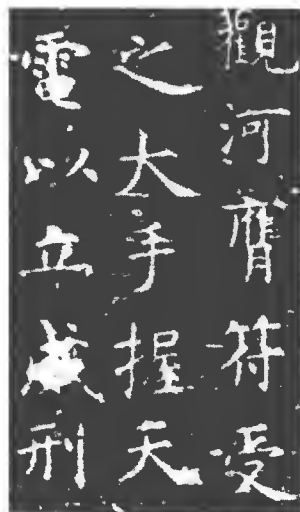 觀河膺符受
之大手握天
電以立威刑